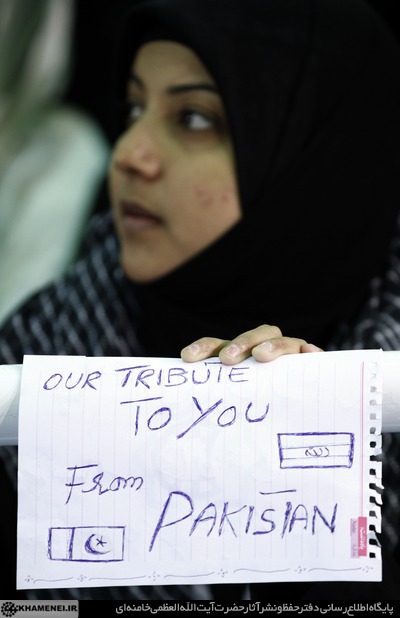 OUR TRIBUTE
TO YOU
From
PAKISTAN
KHAMENEI.IR
پایگاه اطلاع‌رسانی دفتر حفظ و نشر آثار حضرت آیت‌الله‌العظمی خامنه‌ای